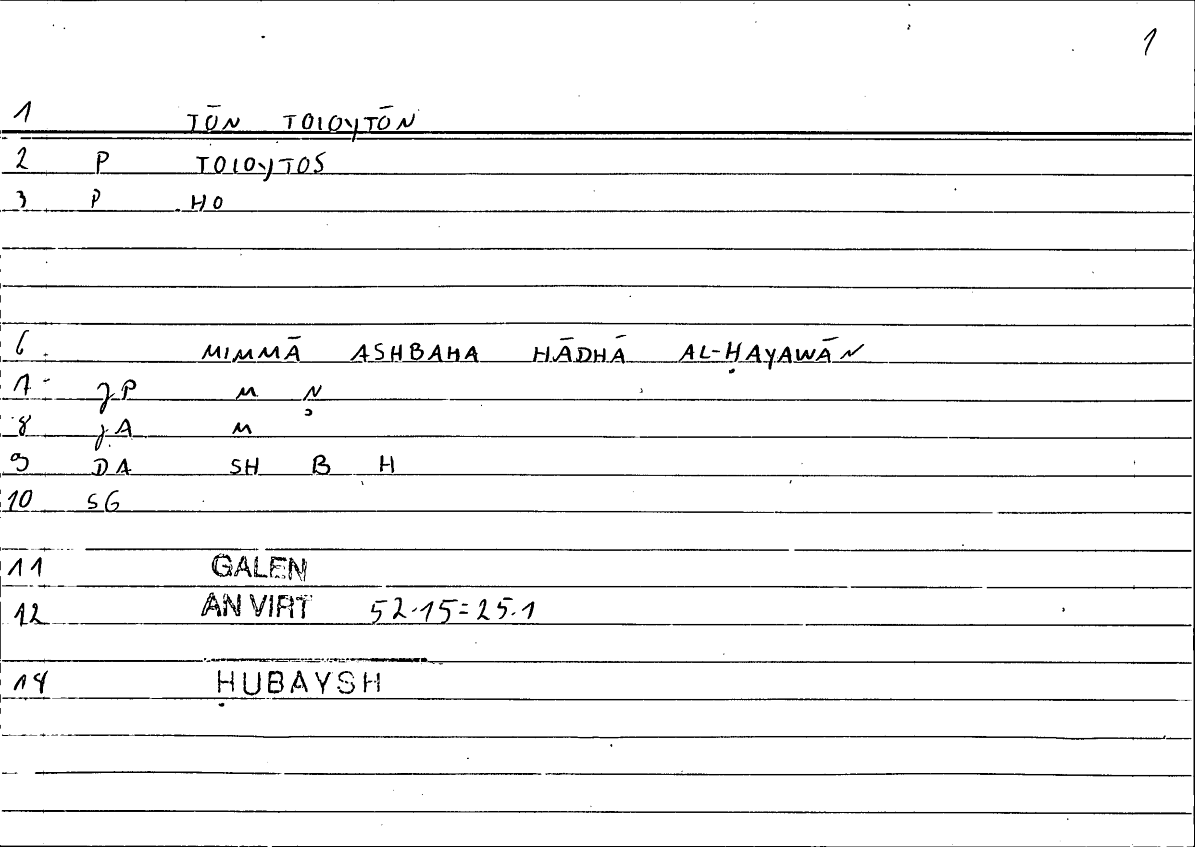 1
1 TŌN TOIOYTŌN
2 P TOIOYTOS
3 P HO
6 MIMMĀ ASHBAHA HĀDHĀ AL-ḤAYAWĀN
7 JP M N
8 JA M
9 DA SH B H
10 SG
11 GALEN
12 AN VIRT 52.15=25.1
14 ḤUBAYSH